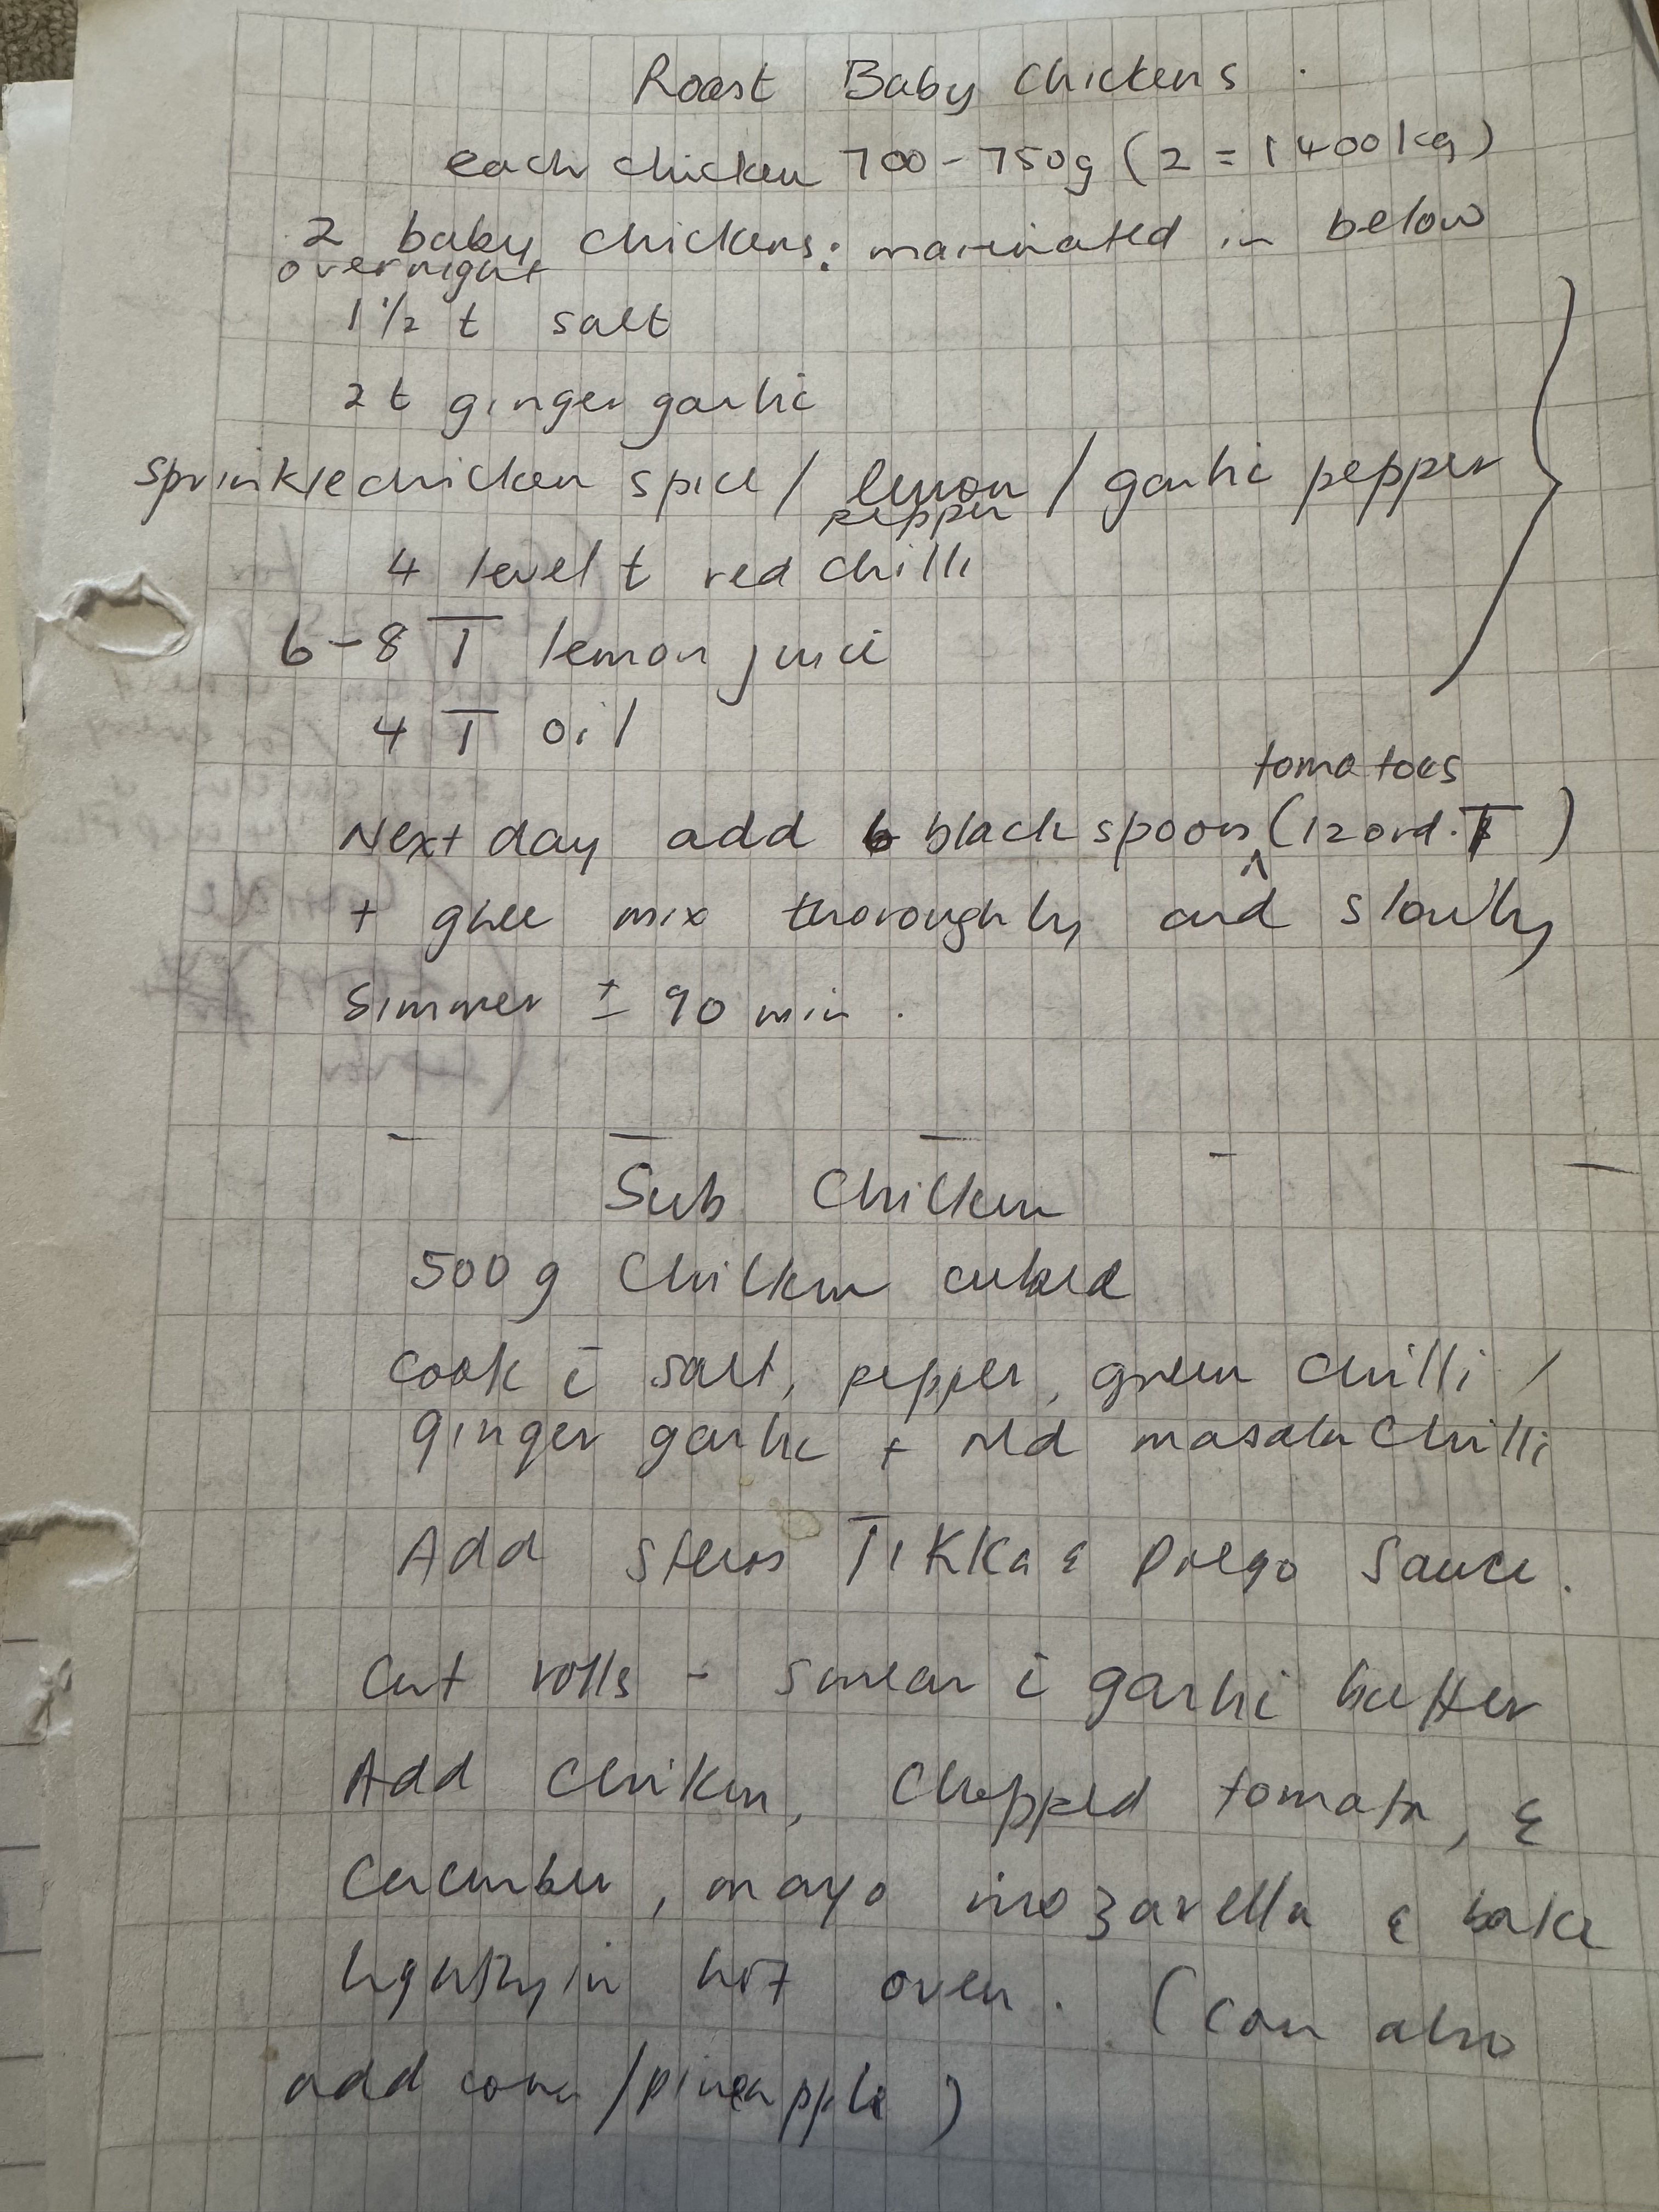 Roast Baby Chickens.
each chicken 700-750g (2 = 1400kg)
2 baby chickens: marinated in below
overnight
1 1/2 t salt
2 t ginger garlic
sprinkle chicken spice / lemon / garlic pepper
pepper
4 level t red chilli
6-8 T lemon juice
4 T oil
tomatoes
Next day add 6 black spoons (12 ord. T)
+ ghee mix thoroughly and slowly
simmer ± 90 min.
Sub Chicken
500g Chicken cubed
cook c̄ salt, pepper, green chilli /
ginger garlic + red masala Chilli
Add Steers Tikka & Prego Sauce.
Cut rolls - smear c̄ garlic butter
Add Chiken, Chopped tomato, &
Cucumber, mayo mozarella & bake
lightly in hot oven. (can also
add corn /pineapple)